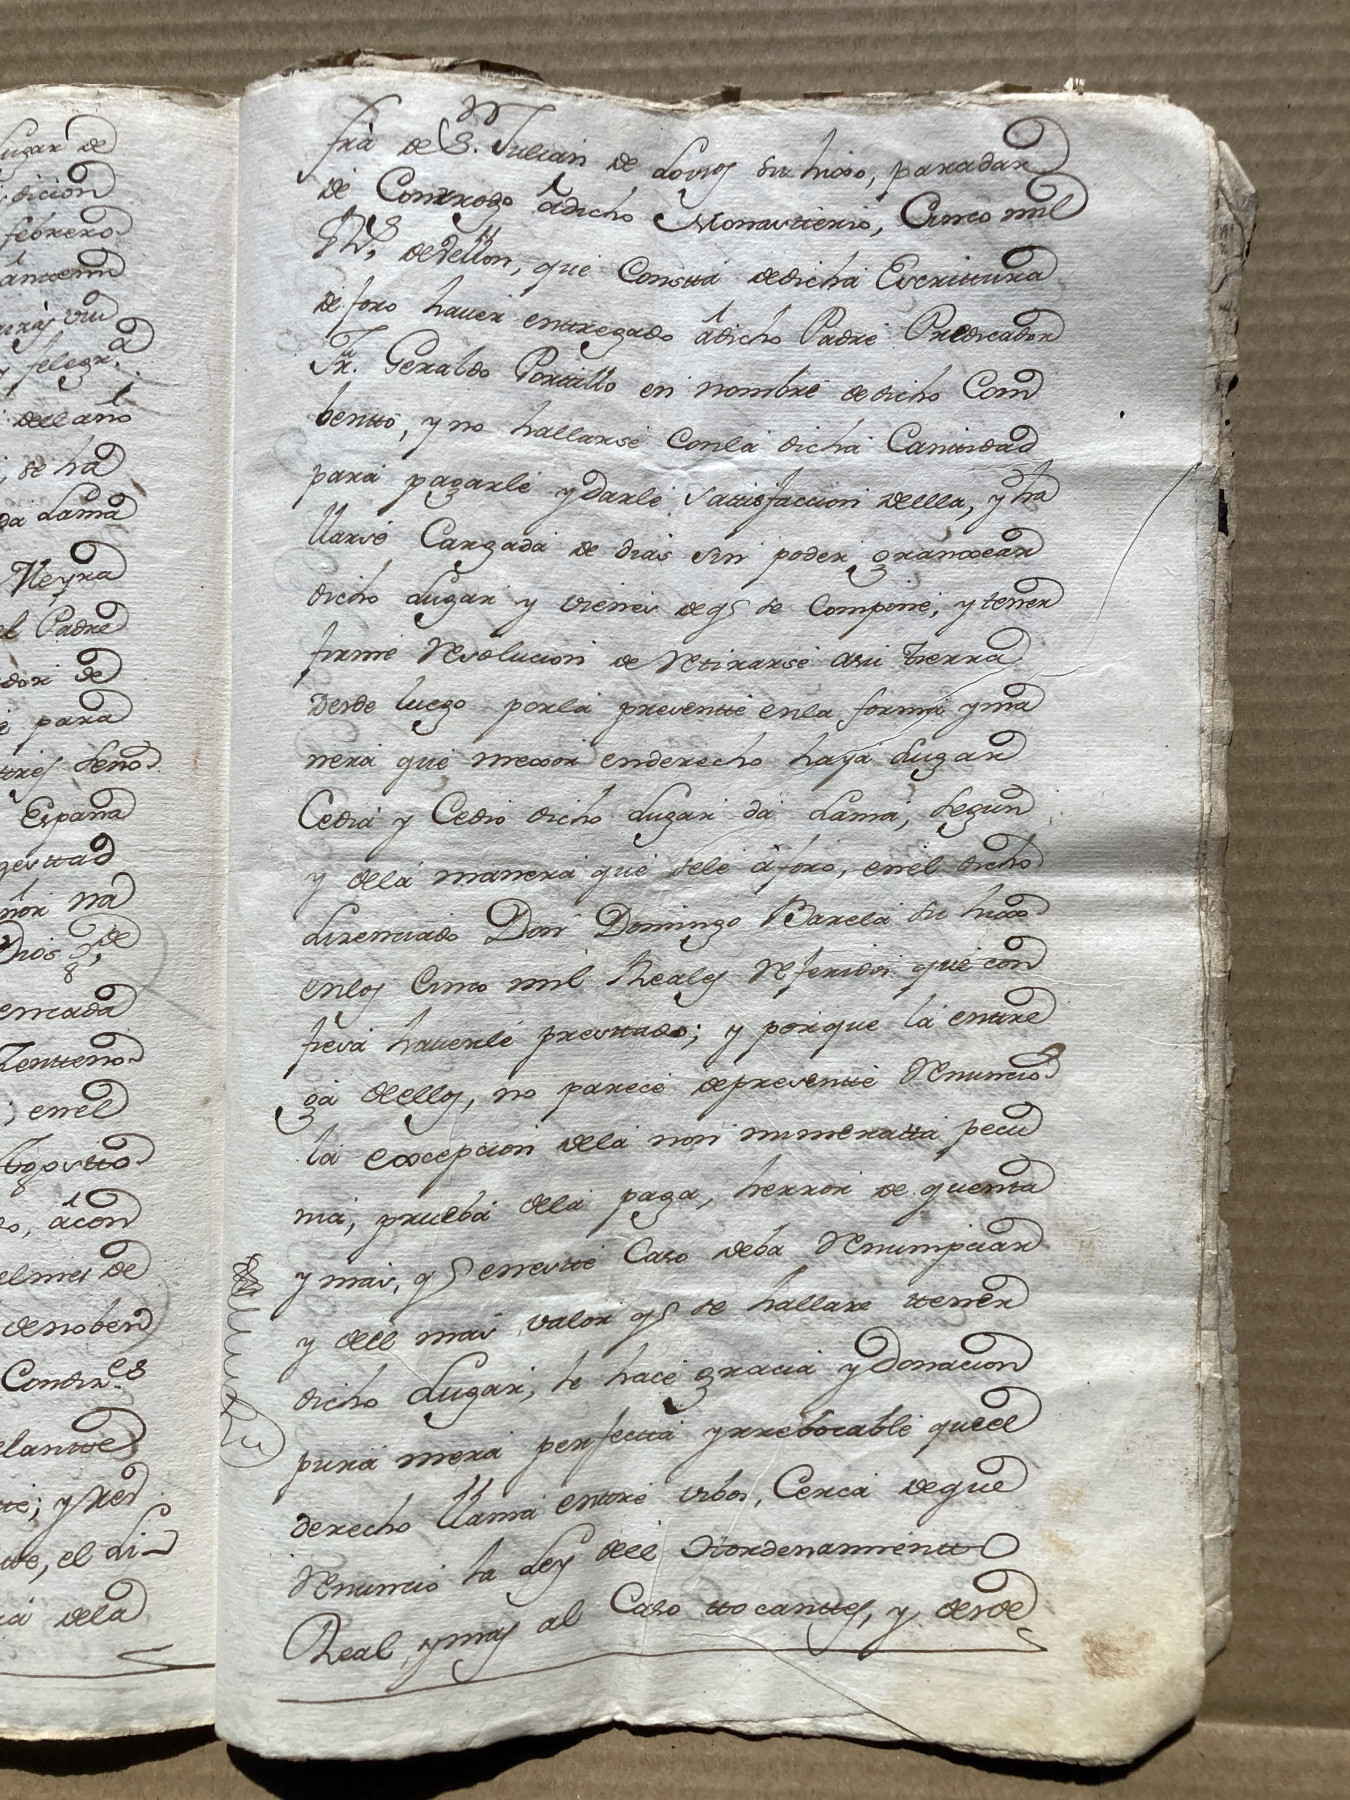 lugar de
dicion
febrero
antemi
viu
y felegr.a
dell año
se ha
da Lama
Neyra
el Padre
dor de
para
tres Seño
España
gesttad
nor na
Dios g.de
Zentteno
; enel
Agostto
acon
elmes de
denoben
Condiz.es
elantte
tte; y Red
, el Li
dela
fria de S.n Julian de Lovios su hixo, para dar
de Conttado â dicho Monastterio, Cinco mil
R.s de Vellon, que Constta de dicha Escrittura
de foro haver enttregado â dicho Padre Predicador
Fr. Geraldo Portillo en nombre de dicho Com
bentto, y no hallarse Con la dicha Cantidad
para pagarle y darle sattisfaccion della, y ha
llarse Cargada de dias sin poder granxear
dicho Lugar y vienes de q.e se Compone, y tener
firme Resolucion de Retirarse asu tierra
Desde luego por la presentte en la forma y ma
nera que mexor enderecho haya Lugar
Cedia y Cedio dicho Lugar da Lama, Segun
y dela manera que sele âforo, en el dicho
Lizenciado Don Domingo Barela su hixo
en los Cinco mil Reales Referidos que con
fiesa haverle presttado; y porque la enttre
ga dellos, no parece depresentte Renuncio
la excepcion dela non numeratta pecu
nia, prueba dela paga, herror de quenta
y mas, q.e en estte Caso deba Renumpciar
y dell mas valor q.e se hallare ttener
dicho Lugar, le hace gracia y Donacion
pura mera perfectta yrrebocable que el
derecho llama enttre vibos, Cerca de que
Renuncio la Ley dell Hordenamientto
Real, y mas al Caso ttocanttes, y desde